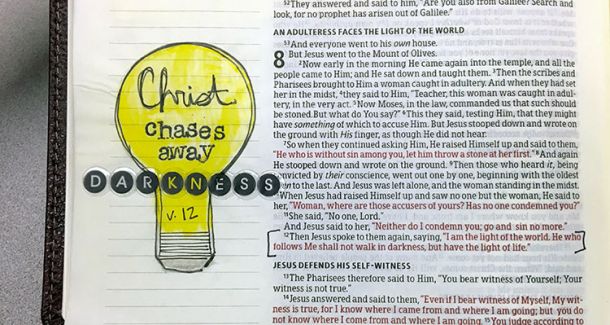 Christ
chases
away
DARKNESS
v. 12
52They answered and said to him, "Are you also from Galilee? Search and
look, for no prophet has arisen out of Galilee."
AN ADULTERESS FACES THE LIGHT OF THE WORLD
53And everyone went to his own house.
8 But Jesus went to the Mount of Olives.
2Now early in the morning He came again into the temple, and all the
people came to Him; and He sat down and taught them. 3Then the scribes and
Pharisees brought to Him a woman caught in adultery. And when they had set
her in the midst, 4they said to Him, "Teacher, this woman was caught in adul-
tery, in the very act. 5Now Moses, in the law, commanded us that such should
be stoned. But what do You say?" 6This they said, testing Him, that they might
have something of which to accuse Him. But Jesus stooped down and wrote on
the ground with His finger, as though He did not hear.
7So when they continued asking Him, He raised Himself up and said to them,
"He who is without sin among you, let him throw a stone at her first." 8And again
He stooped down and wrote on the ground. 9Then those who heard it, being
convicted by their conscience, went out one by one, beginning with the oldest
to the last. And Jesus was left alone, and the woman standing in the midst.
When Jesus had raised Himself up and saw no one but the woman, He said to
her, "Woman, where are those accusers of yours? Has no one condemned you?"
11She said, "No one, Lord."
And Jesus said to her, "Neither do I condemn you; go and sin no more."
12Then Jesus spoke to them again, saying, "I am the light of the world. He who
follows Me shall not walk in darkness, but have the light of life."
JESUS DEFENDS HIS SELF-WITNESS
13The Pharisees therefore said to Him, "You bear witness of Yourself; Your
witness is not true."
14Jesus answered and said to them, "Even if I bear witness of Myself, My wit-
ness is true, for I know where I came from and where I am going; but you do
not know where I come from and where I am going. 15You judge according to